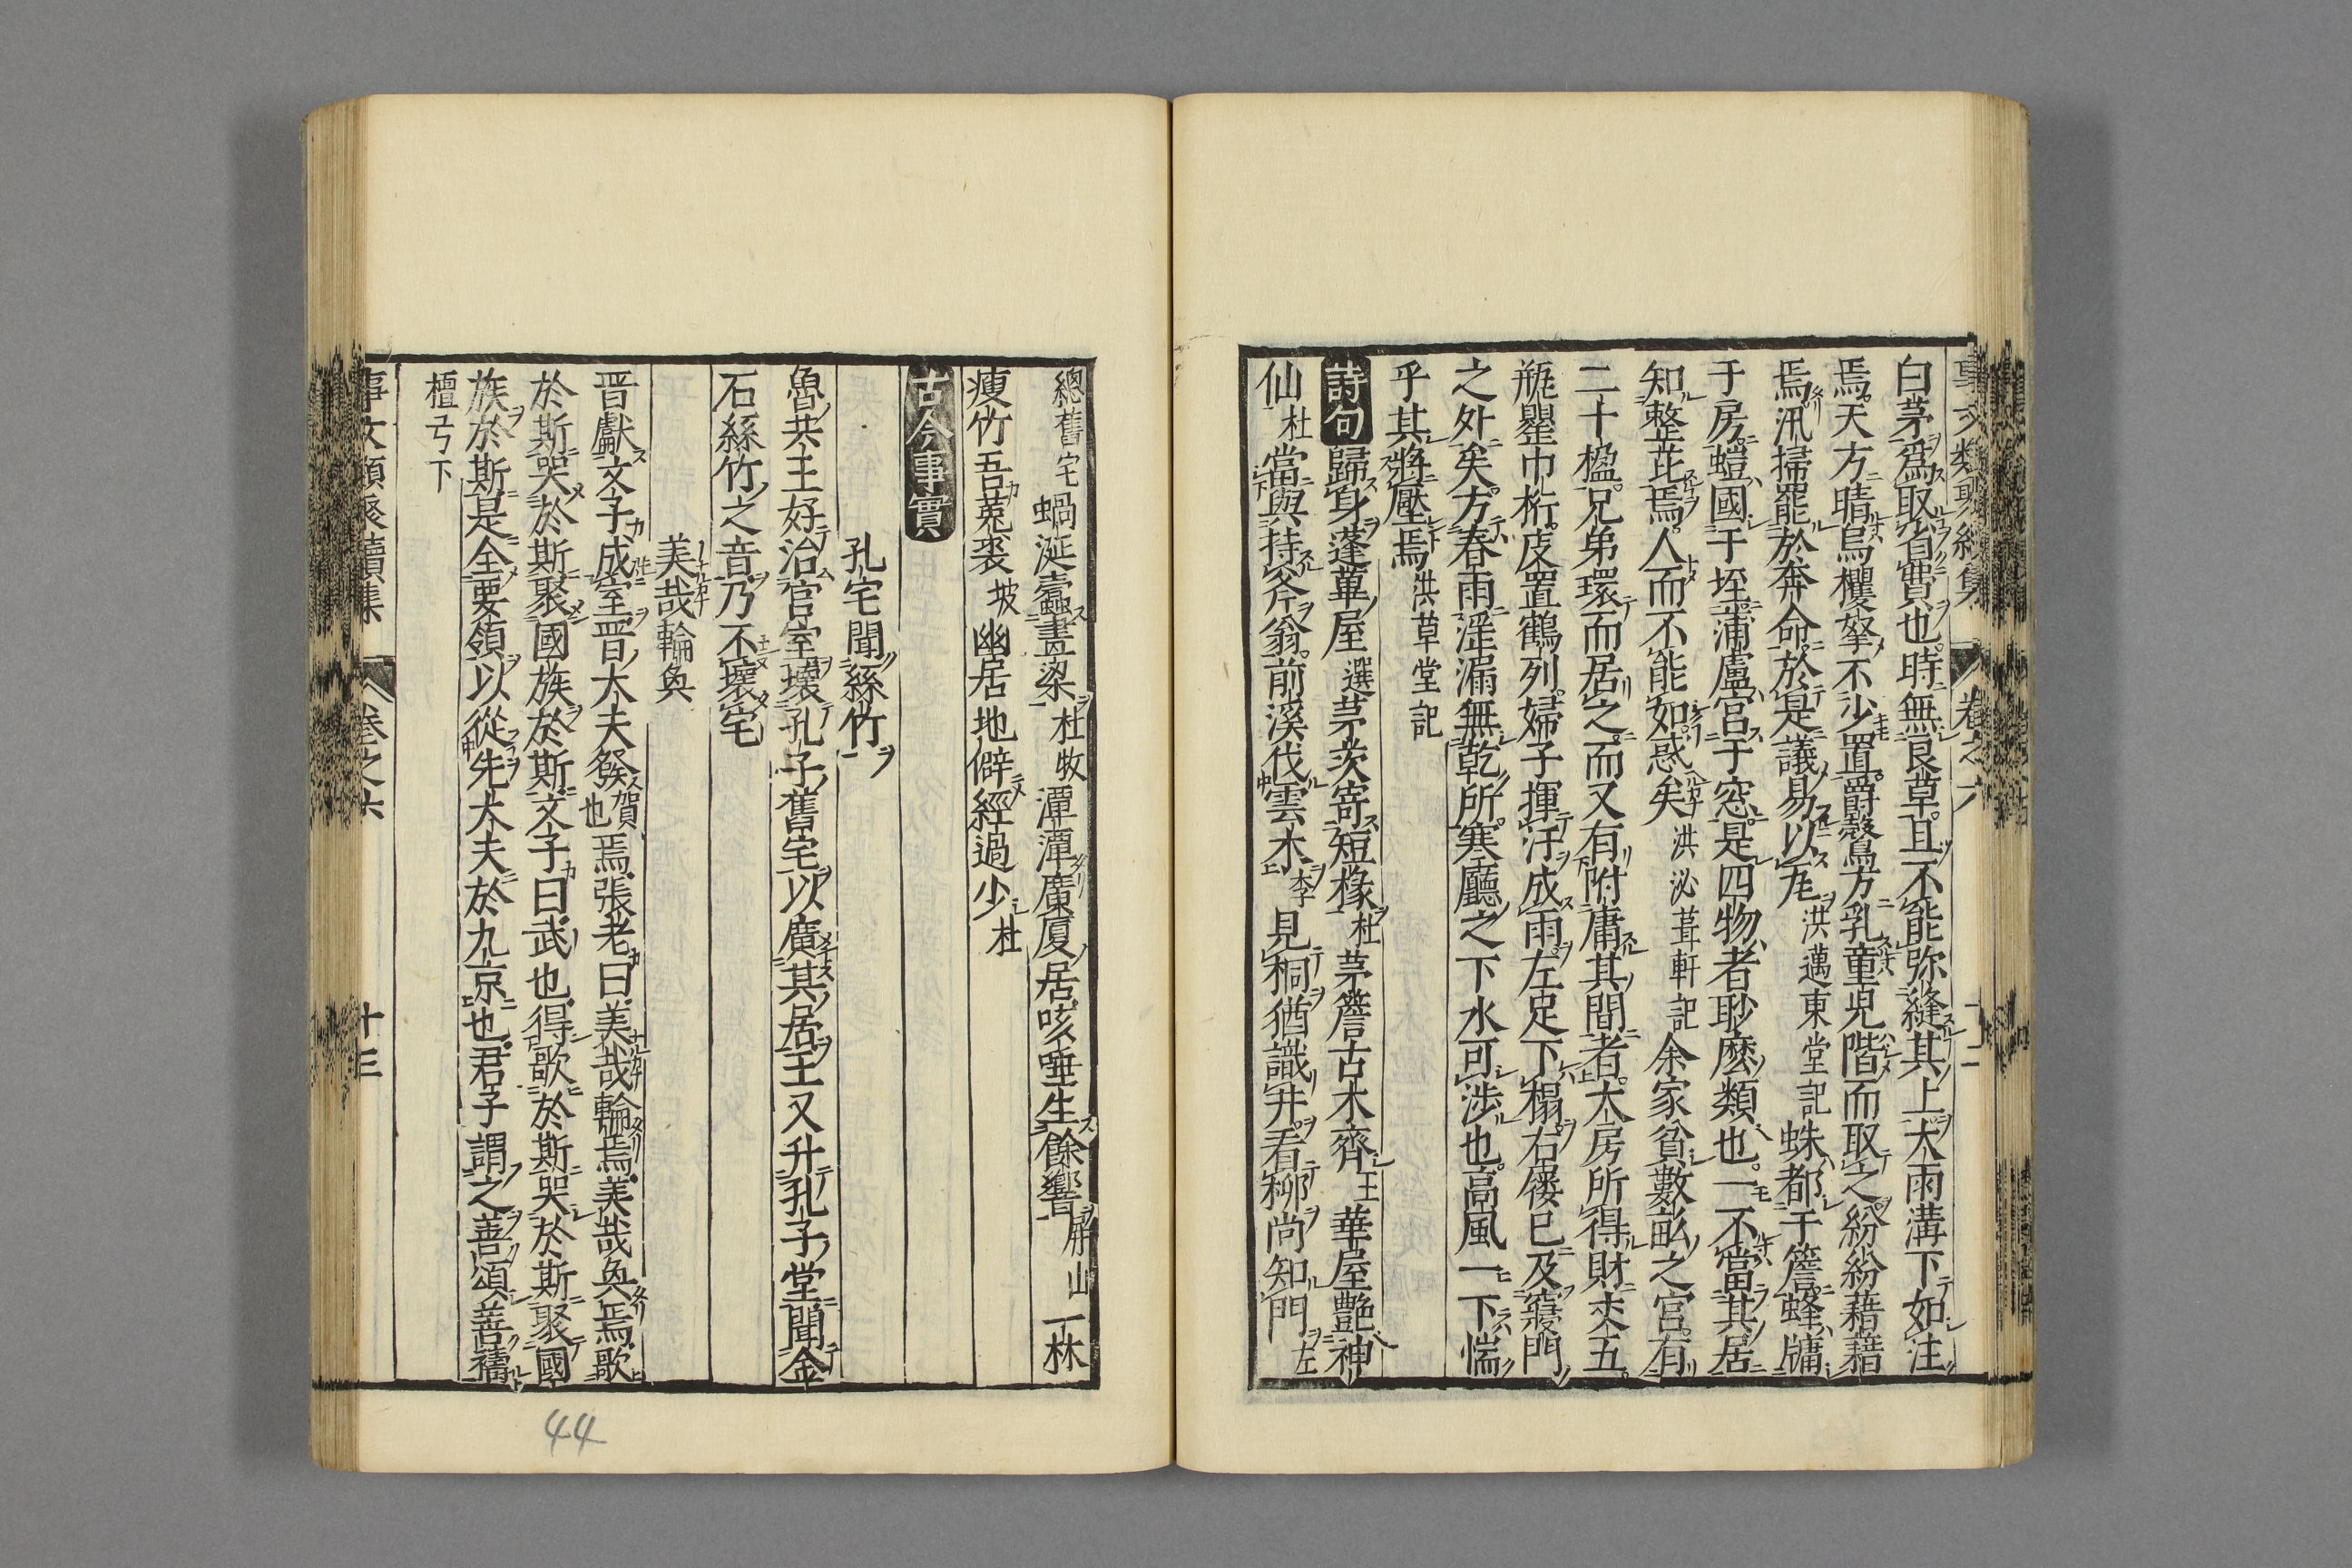 白茅爲取省費也時無良草且不能弥縫其上大雨溝下如注
焉天方晴烏攫拏不少置爵鷇方乳童児階而取之紛紛藉藉
焉汛掃罷於奔命於是議易以瓦洪邁東堂記蛛都于簷蜂牗
于房螘國于垤蒲盧宮于窓是四物者眇麽類也一不當其居
知整茈焉人而不能如惑矣洪泌葺軒記余家貧數畝之宮有
二十楹兄弟環而居之而又有附庸其間者大房所得財夾五
瓶罌巾桁庋置鶴列婦子揮汗成雨左足下榻右僂已及寢門
之外矣方春雨淫漏無乾所寒廳之下水可渉也高風一下惴
乎其將壓焉洪草堂記
詩句歸身蓬蓽屋選茅茨寄短椽杜茅簷古木齊王華屋艶神
仙杜當與持斧翁前溪伐雲木李見桐猶識井看柳尚知門左
總舊宅蝸涎蠧畫梁杜牧潭潭廣厦居咳唾生餘響屏山一林
瘦竹吾菟裘坡幽居地僻經過少杜
古今事實
孔宅聞絲竹
魯共王好治官室壞孔子舊宅以廣其居王又升孔子堂聞金
石絲竹之音乃不壞宅
美哉輪奐
晋獻文子成室晋大夫發賀也焉張老曰美哉輪焉美哉奐焉歌
於斯哭於斯聚國族於斯文子曰武也得歌於斯哭於斯聚國
族於斯是全要領以從先大夫於九京也君子謂之善頌善禱
檀弓下
事文類聚續集 卷之六 十三
44